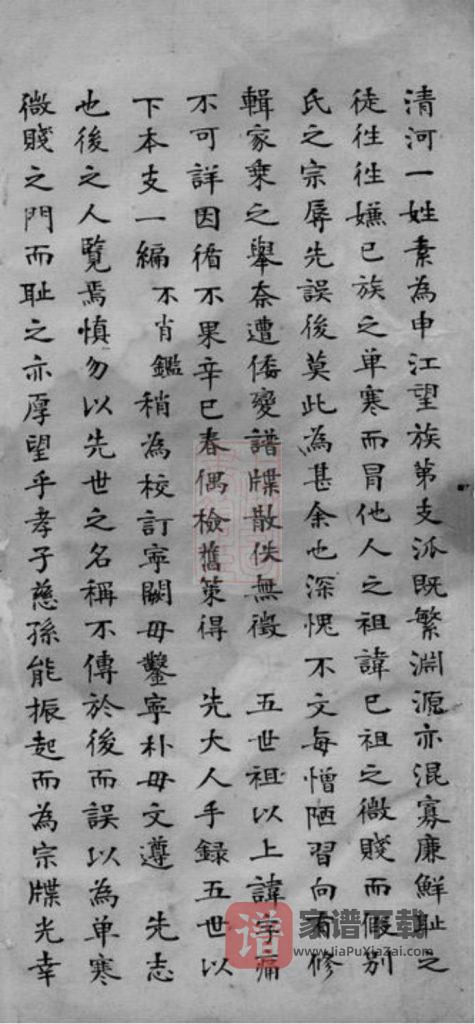 清河一姓素為申江望族第支派既繁淵源亦混寡廉鮮恥之
徒往往嫌已族之单寒而冒他人之祖諱已祖之微賤而假别
氏之宗辱先誤後莫此為甚余也深愧不文每憎陋習向有修
輯家乘之舉奈遭倭變譜牒散佚無徵 五世祖以上諱字痛
不可詳因循不果辛巳春偶檢舊箧得 先大人手録五世以
下本支一編 不肖鑑稍為校訂寧闕毋鑿寧朴毋文遵 先志
也後之人覽焉慎勿以先世之名稱不傳於後而誤以為单寒
微賤之門而恥之亦厚望乎孝子慈孫能振起而為宗牒光幸
谱
家谱下载
www.JiaPuXiaZai.com